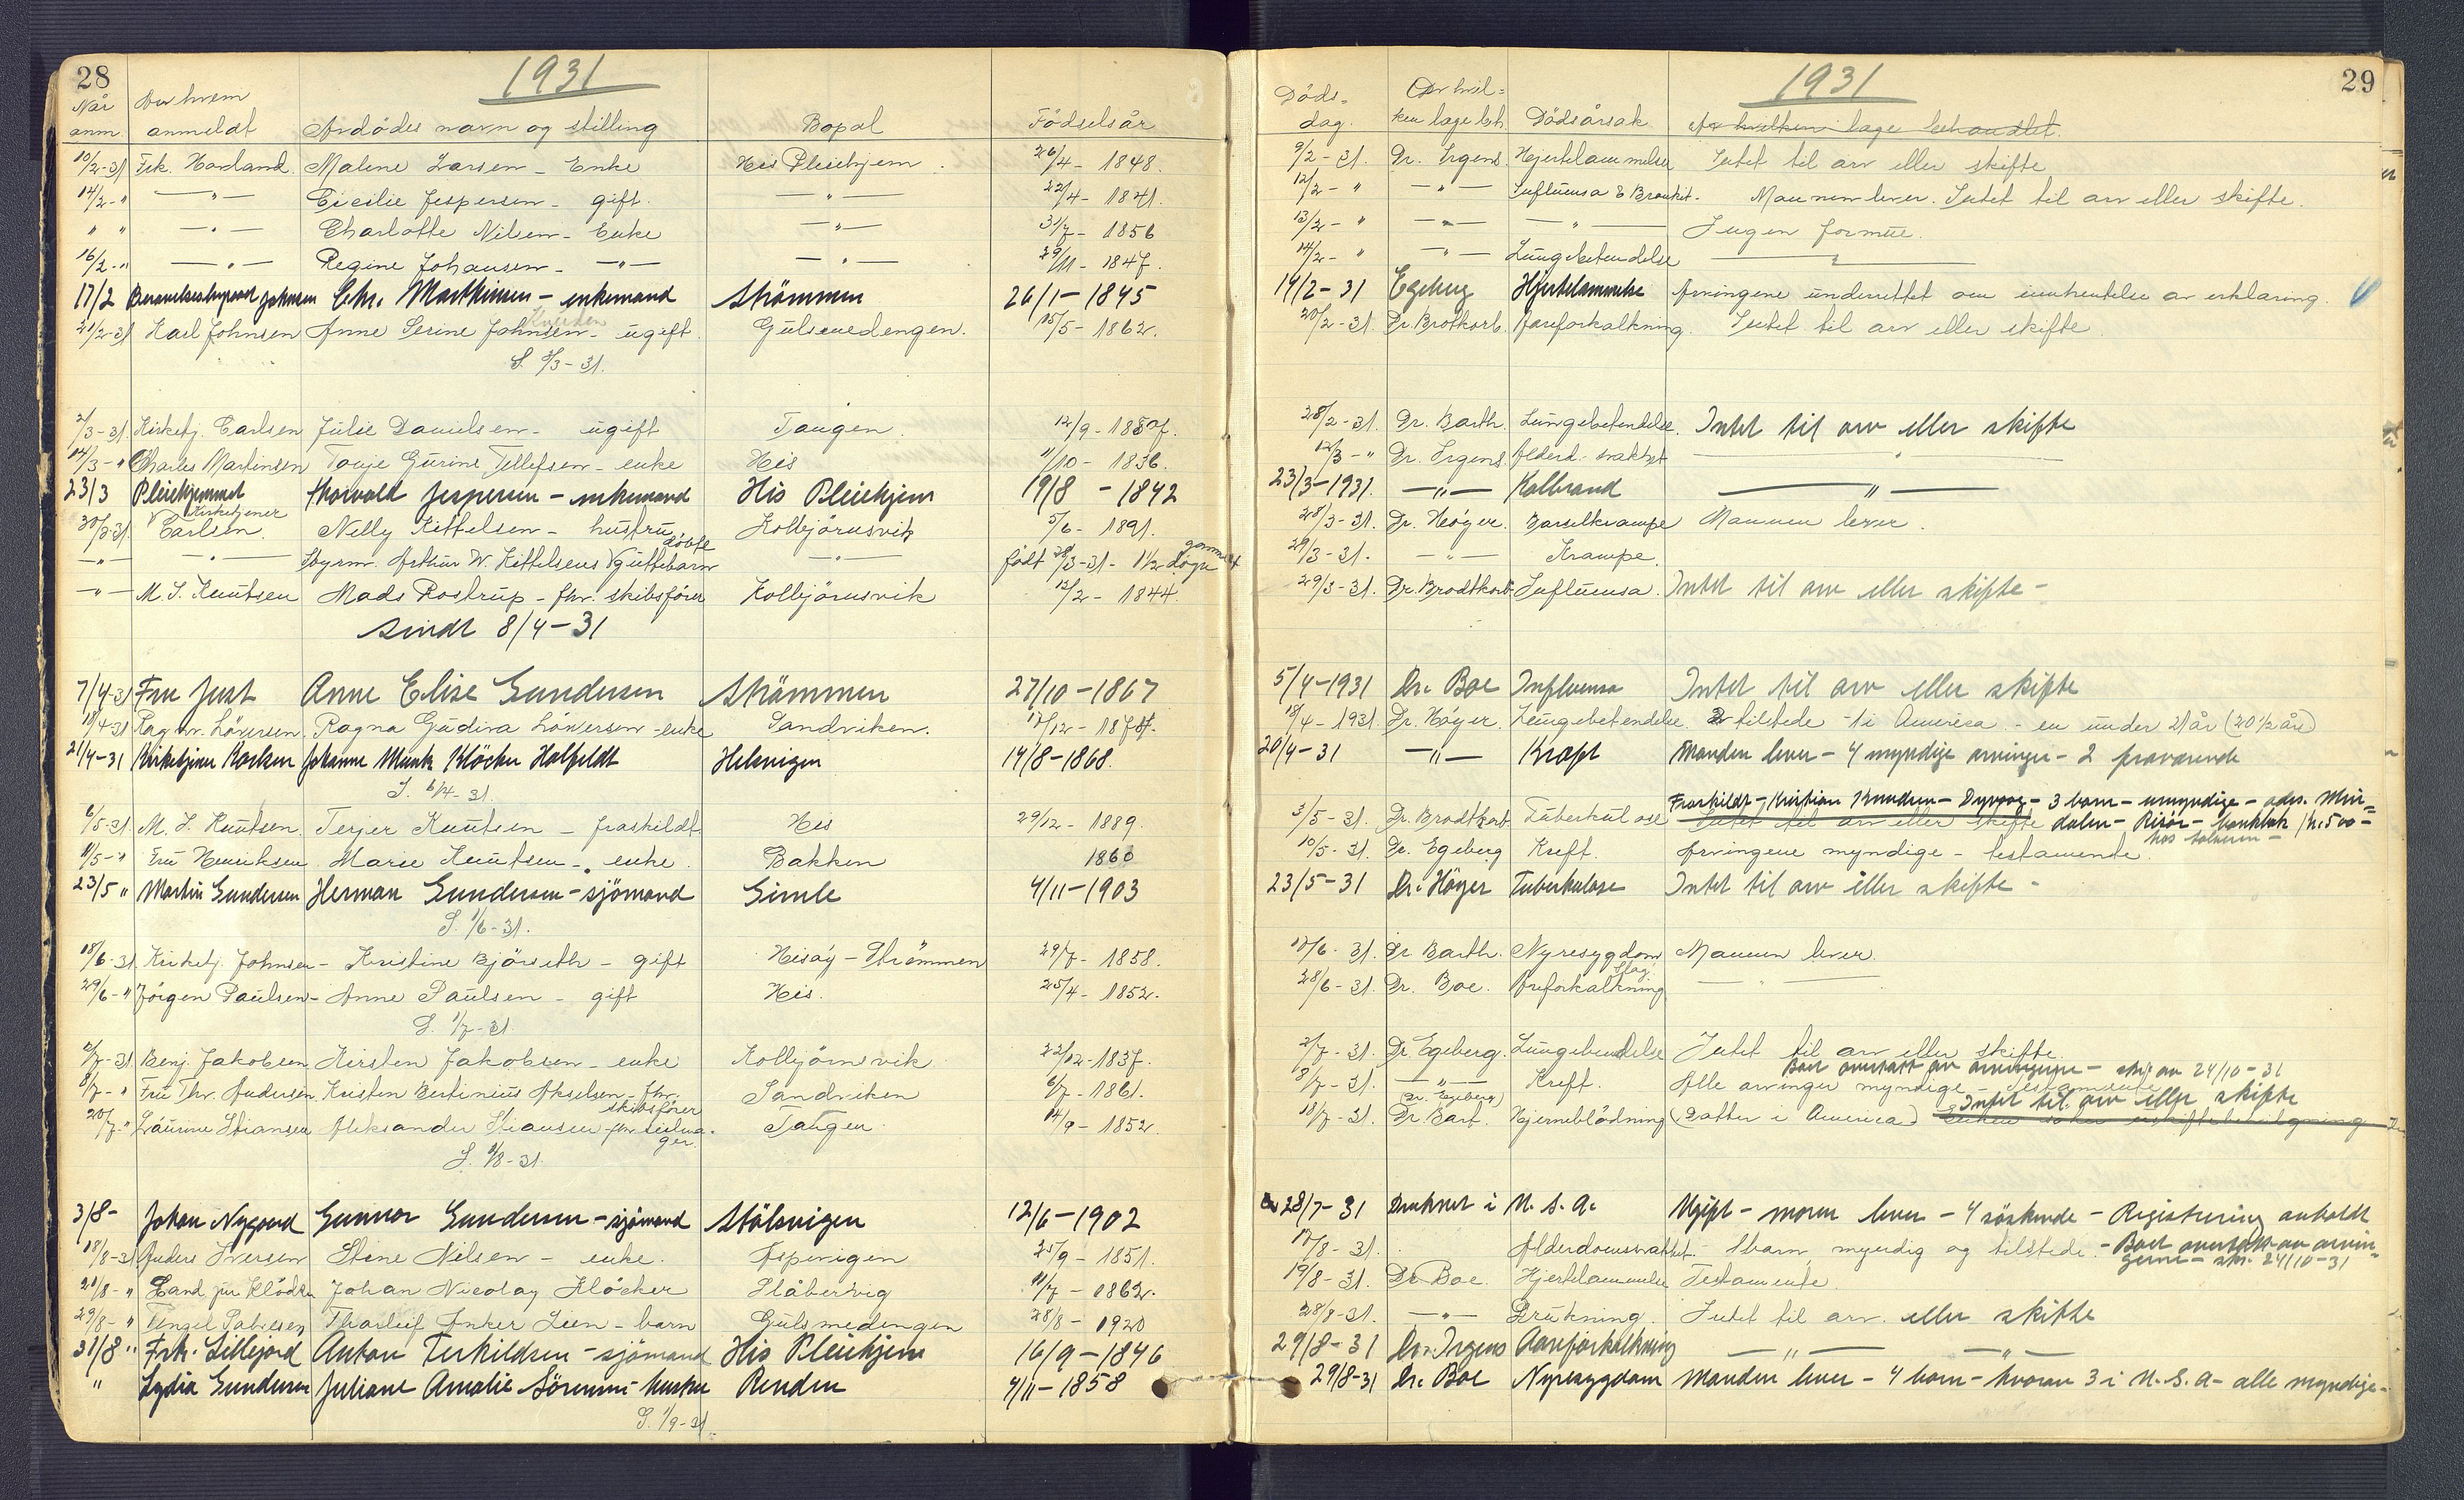 28 1931
Når anm. Av hvem anmeldt Avdødes navn og stilling Bopæl Fødselsår
10/2-31 Frk. Havland. Malene Larsen - Enke His Pleiehjem. 26/4 - 1848.
14/2-" —"— Cicilie Jespersen - gift. —"— 22/4 - 1841.
" " —"— Charlotte Nilsen - Enke —"— 31/7 - 1856
16/2-" —"— Regine Johansen - —"— —"— 29/11 - 1847.
17/2 Johnsen Chr. Marthinsen - enkemand Strømmen 26/1 - 1845
21/2-31 Karl Johnsen Anne Serine Johnsen - ugift Gulsmedengen. 15/5 - 1862.
S. 3/3-31.
2/3-31. Kirketj. Carlsen Julie Danielsen - ugift Tangen.
14/3-" Charles Martinsen Tonje Gurine Tellefsen - enke His 11/10 - 1836.
23/3 Pleiehjemmet Thorvald Jespersen - enkemand His Pleiehjem 19/8 - 1842
30/3-31. Kirketjener Carlsen. Nelly Kittelsen - hustru Kolbjørnsvik 5/6 - 1891.
—"— —"— Styrm. Arthur W. Kittelsens døpte guttebarn —"— født 28/3-31 - 1 1/2 døgn gammelt
—"— M. S. Knutsen Mads Rostrup - fhv. skibsfører Kolbjørnsvik 12/2 - 1844.
Sendt 8/4-31
7/4-31 Fru Just Anne Elise Gundersen Strømmen 27/10 - 1867
18/4-31 Ragnv. Løversen. Ragna Gudiva Løversen - enke Sandviken.
21/4-31 Kirketjener Karlsen Johanne Munk Kløcker Halfeldt Helsvigen 14/8 - 1868.
6/5-31. M. S. Knutsen. Terjer Knutsen - fraskildt His 29/12 - 1889.
11/5-" Fru Henriksen Marie Knutsen - enke. Bakken 1860
23/5 " Martin Gundersen Herman Gundersen - sjømand Gimle 4/11 - 1903
S. 1/6-31.
18/6-31 Kirketj. Johnsen - Kristine Bjørseth - gift Hisøy - Strømmen 29/7 - 1858.
29/6-" Jørgen Paulsen - Anne Paulsen - gift His. 25/4 - 1852.
S. 1/7-31.
Benj. Jakobsen Kirsten Jakobsen - enke Kolbjørnsvik 22/12 - 1837.
8/7-" Fru Thr. Andersen Kristen Bertinius Akselsen - fhv. skibsfører Sandviken 6/7 - 1861.
20/7-" Laurine Stiansen Aleksander Stiansen fhv. seilmager. Tangen 14/9 - 1852.
S. 1/8-31.
3/8- Johan Nygaard Gunnar Gundersen - sjømand Stølsvigen 12/6 - 1902
18/8-31 Anders Iversen Stine Nilsen - enke. Aspevigen 25/9 - 1851.
21/8-" Cand. jur Kløcker Johan Nicolay Kløcker Slåbervig 11/7 - 1862.
29/8-" Tharleif Anker Lien - barn Gulsmedengen 28/8 - 1920
31/8 " Frk. Lillejord Anton Terkildsen - sjømand His Pleiehjem 16/9 - 1846
" Lydia Gundersen Juliane Amalie Sørensen - hustru Renden 4/11 - 1858
S. 1/9-31.
1931 29
Døds-dag. Av hvilken læge beh. Dødsårsak Av hvilken læge behandlet.
9/2-31. Dr. Irgens Hjertelammelse Intet til arv eller skifte
12/2-" —"— Influensa & Bronkit. Mannen lever. Intet til arv eller skifte.
13/2-" —"— —"— Ingen formue.
14/2-" —"— Lungebetendelse —"—
14/2-31 Egeberg Hjertelammelse Arvingene underrettet om innhentelse av erklæring.
20/2-31. Dr. Brotkorb. Åreforkalkning. Intet til arv eller skifte.
28/2-31. Dr. Barth. Lungebetendelse. Intet til arv eller skifte
12/3-" Dr. Irgens. Alderd. svakhet —"—
23/3-1931. —"— Kolbrand —"—
28/3-31. Dr. Høyer. Barselkrampe Mannen lever.
29/3-31. —"— Krampe.
29/3-31. Dr. Brodtkorb Influensa. Intet til arv eller skifte -
5/4-1931 Dr. Boe Influensa Intet til arv eller skifte
18/4-1931. Dr. Høyer. Lungebetendelse 2 tilstede - 1 i America - en under 21 år (20 1/2 år)
20/4-31 —"— Kræft Manden lever - 4 myndige arvinger - 2 fraværende
Fraskildt - Kristian Knudsen - Dyvaag - 3 barn - umyndige - adr. Mindalen - Risør - bankbok kr. 500-
3/5-31. Dr. Brodtkorb Tuberkulose Intet til arv eller skifte
10/5-31. Dr. Egeberg Kreft. Arvingene myndige - testamente.
23/5-31 Dr. Høyer Tuberkulose Intet til arv eller skifte -
17/6-31. Dr Barth. Nyresygdom Mannen lever.
28/6-31. Dr. Boe. Åreforkalkning Slag. —"—
2/7-31. Dr. Egeberg. Lungebetendelse Intet til arv eller skifte.
Boet overtatt av arvingerne - skj. av 24/10-31
8/7-31. —"— Kreft. Alle arvinger myndige - Testamente
Intet til arv eller skifte
18/7-31. (Dr. Egeberg) Dr. Bart. Hjerneblødning (Datter i America) Enken søker uskiftebevilgning
28/7-31 Druknet i U.S.A. Ugift - moren lever - 4 søskende - Registrering anholdt
17/8-31. Alderdomssvakhet. 1 barn, myndig og tilstede. - Boet overtatt av arvingerne - skr. 24/10-31
19/8-31. Dr. Boe. Hjertelammelse Testamente.
28/8-31. —"— Drukning. Intet til arv eller skifte
29/8-31 Dr. Irgens Aareforkalkning —"— —"—
29/8-31 Dr. Boe Nyresygdom Manden lever - 4 barn - hvorav 3 i U.S.A - alle myndige -